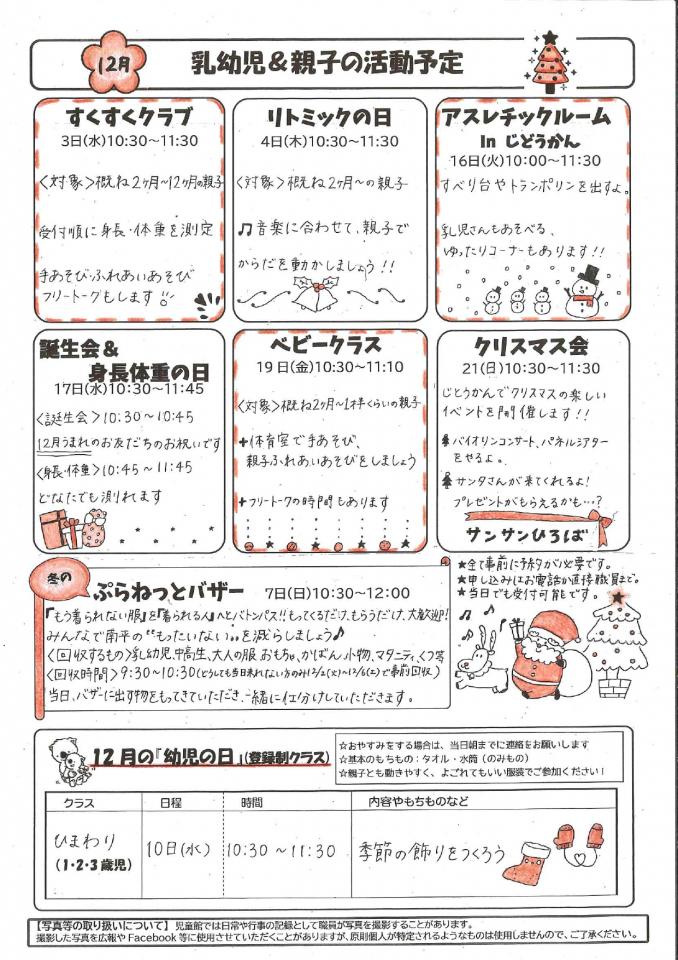 12月
乳幼児＆親子の活動予定
すくすくクラブ
3日(水)10:30～11:30
<対象>概ね2ヶ月～12ヶ月の親子
受付順に身長・体重を測定
手あそび・ふれあいあそび
フリートークもします!!
リトミックの日
4日(木)10:30～11:30
<対象>概ね2ヶ月～の親子
♫音楽に合わせて、親子で
からだを動かしましょう!!
アスレチックルーム
In じどうかん
16日(火)10:00～11:30
すべり台やトランポリンを出すよ。
乳児さんもあそべる、
ゆったりコーナーもあります!!
誕生会＆
身長体重の日
17日(水)10:30～11:45
<誕生会>10:30～10:45
12月うまれのお友だちのお祝いです
<身長・体重>10:45～11:45
どなたでも測れます
ベビークラス
19日(金)10:30～11:10
<対象>概ね2ヶ月～1才半くらいの親子
+体育室で手あそび、
親子ふれあいあそびをしましょう
+フリートークの時間もあります
クリスマス会
21(日)10:30～11:30
じどうかんでクリスマスの楽しい
イベントを開催します!!
バイオリンコンサート、パネルシアター
をやるよ。
サンタさんが来てくれるよ!
プレゼントがもらえるかも…?
サンサンひろば
★全て事前に予約が必要です。
★申し込みはお電話か直接職員まで。
★当日でも受付可能です。
冬の
ぷらねっとバザー 7日(日)10:30～12:00
『もう着られない服』を『着られる人』へとバトンパス!!もってくるだけ、もらうだけ、大歓迎!
みんなで南平の"もったいない"を減らしましょう♪
<回収するもの>乳幼児、中高生、大人の服 おもちゃ、かばん、小物、マタニティ、くつ等
<回収時間>9:30～10:30(どうしても当日来れない方のみ12/2(火)～12/6(土)で事前回収)
当日、バザーに出す物をもってきていただき、一緒に仕分けしていただきます。
12月の『幼児の日』(登録制クラス)
☆おやすみをする場合は、当日朝までに連絡をお願いします
☆基本のもちもの：タオル・水筒（のみもの）
☆親子とも動きやすく、よごれてもいい服装でご参加ください！
クラス 日程 時間 内容やもちものなど
ひまわり
(1・2・3歳児)
10日(水) 10:30～11:30 季節の飾りをつくろう
【写真等の取り扱いについて】児童館では日常や行事の記録として職員が写真を撮影することがあります。
撮影した写真を広報やFacebook等に使用させていただくことがありますが、原則個人が特定されるようなものは使用しませんので、ご了承ください。